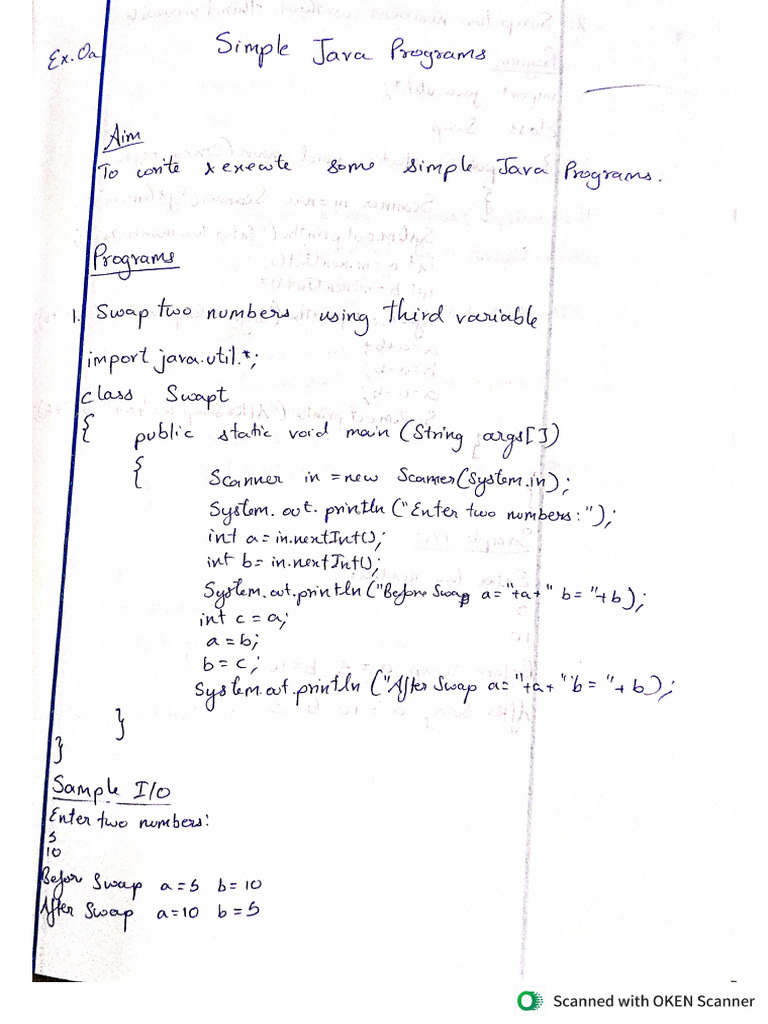 Ex.0a
Simple Java Programs
Aim
To write & execute some simple Java Programs.
Programs
1. Swap two numbers using third variable
import java.util.*;
class Swapt
{
public static void main (String args[])
{
Scanner in = new Scanner(System.in);
System.out.println ("Enter two numbers:");
int a = in.nextInt();
int b = in.nextInt();
System.out.println ("Before Swap a= "+a+" b= "+b);
int c = a;
a = b;
b = c;
System.out.println ("After Swap a= "+a+" b = "+ b);
}
}
Sample I/O
Enter two numbers:
5
10
Befor Swap a = 5 b = 10
After Swap a = 10 b = 5
Scanned with OKEN Scanner